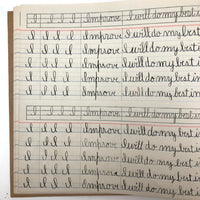 I I I I Improve I will do my best i
I I I I Improve I will do my best i
I I I I Improve I will do my best in
I I I I Improve I will do my best in
I I I I Improve I will do my best in
I I I I Improve I will do my best in
I I I I Improve I will do my best i
I I I I Improve I will do my best in
I I I I Improve I will do my best in
I I I I Improve I will do my best in
I I I I Improve I will do my best in
I I I I Improve I will do my best in